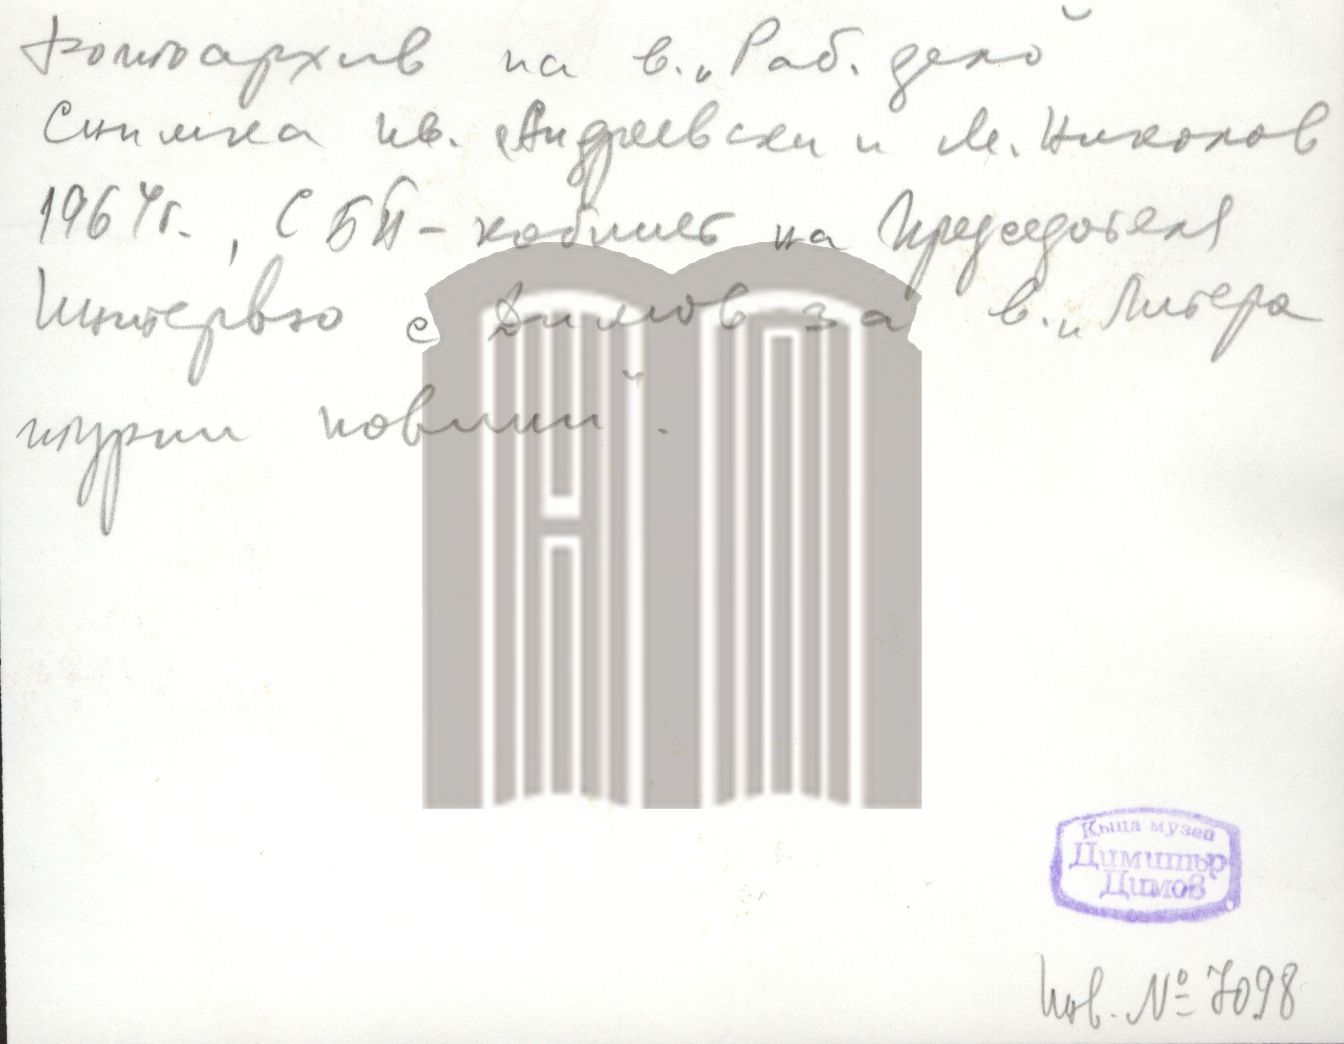 Фотоархив на в. „Раб. дело
Снимка Ив. Андреевски и М. Николов
1964г., СБП - кабинет на Председателя
Интервю с Димов за в. „Литера
турни новини".
Къща музей
Димитър
Димов
Инв. № 7098